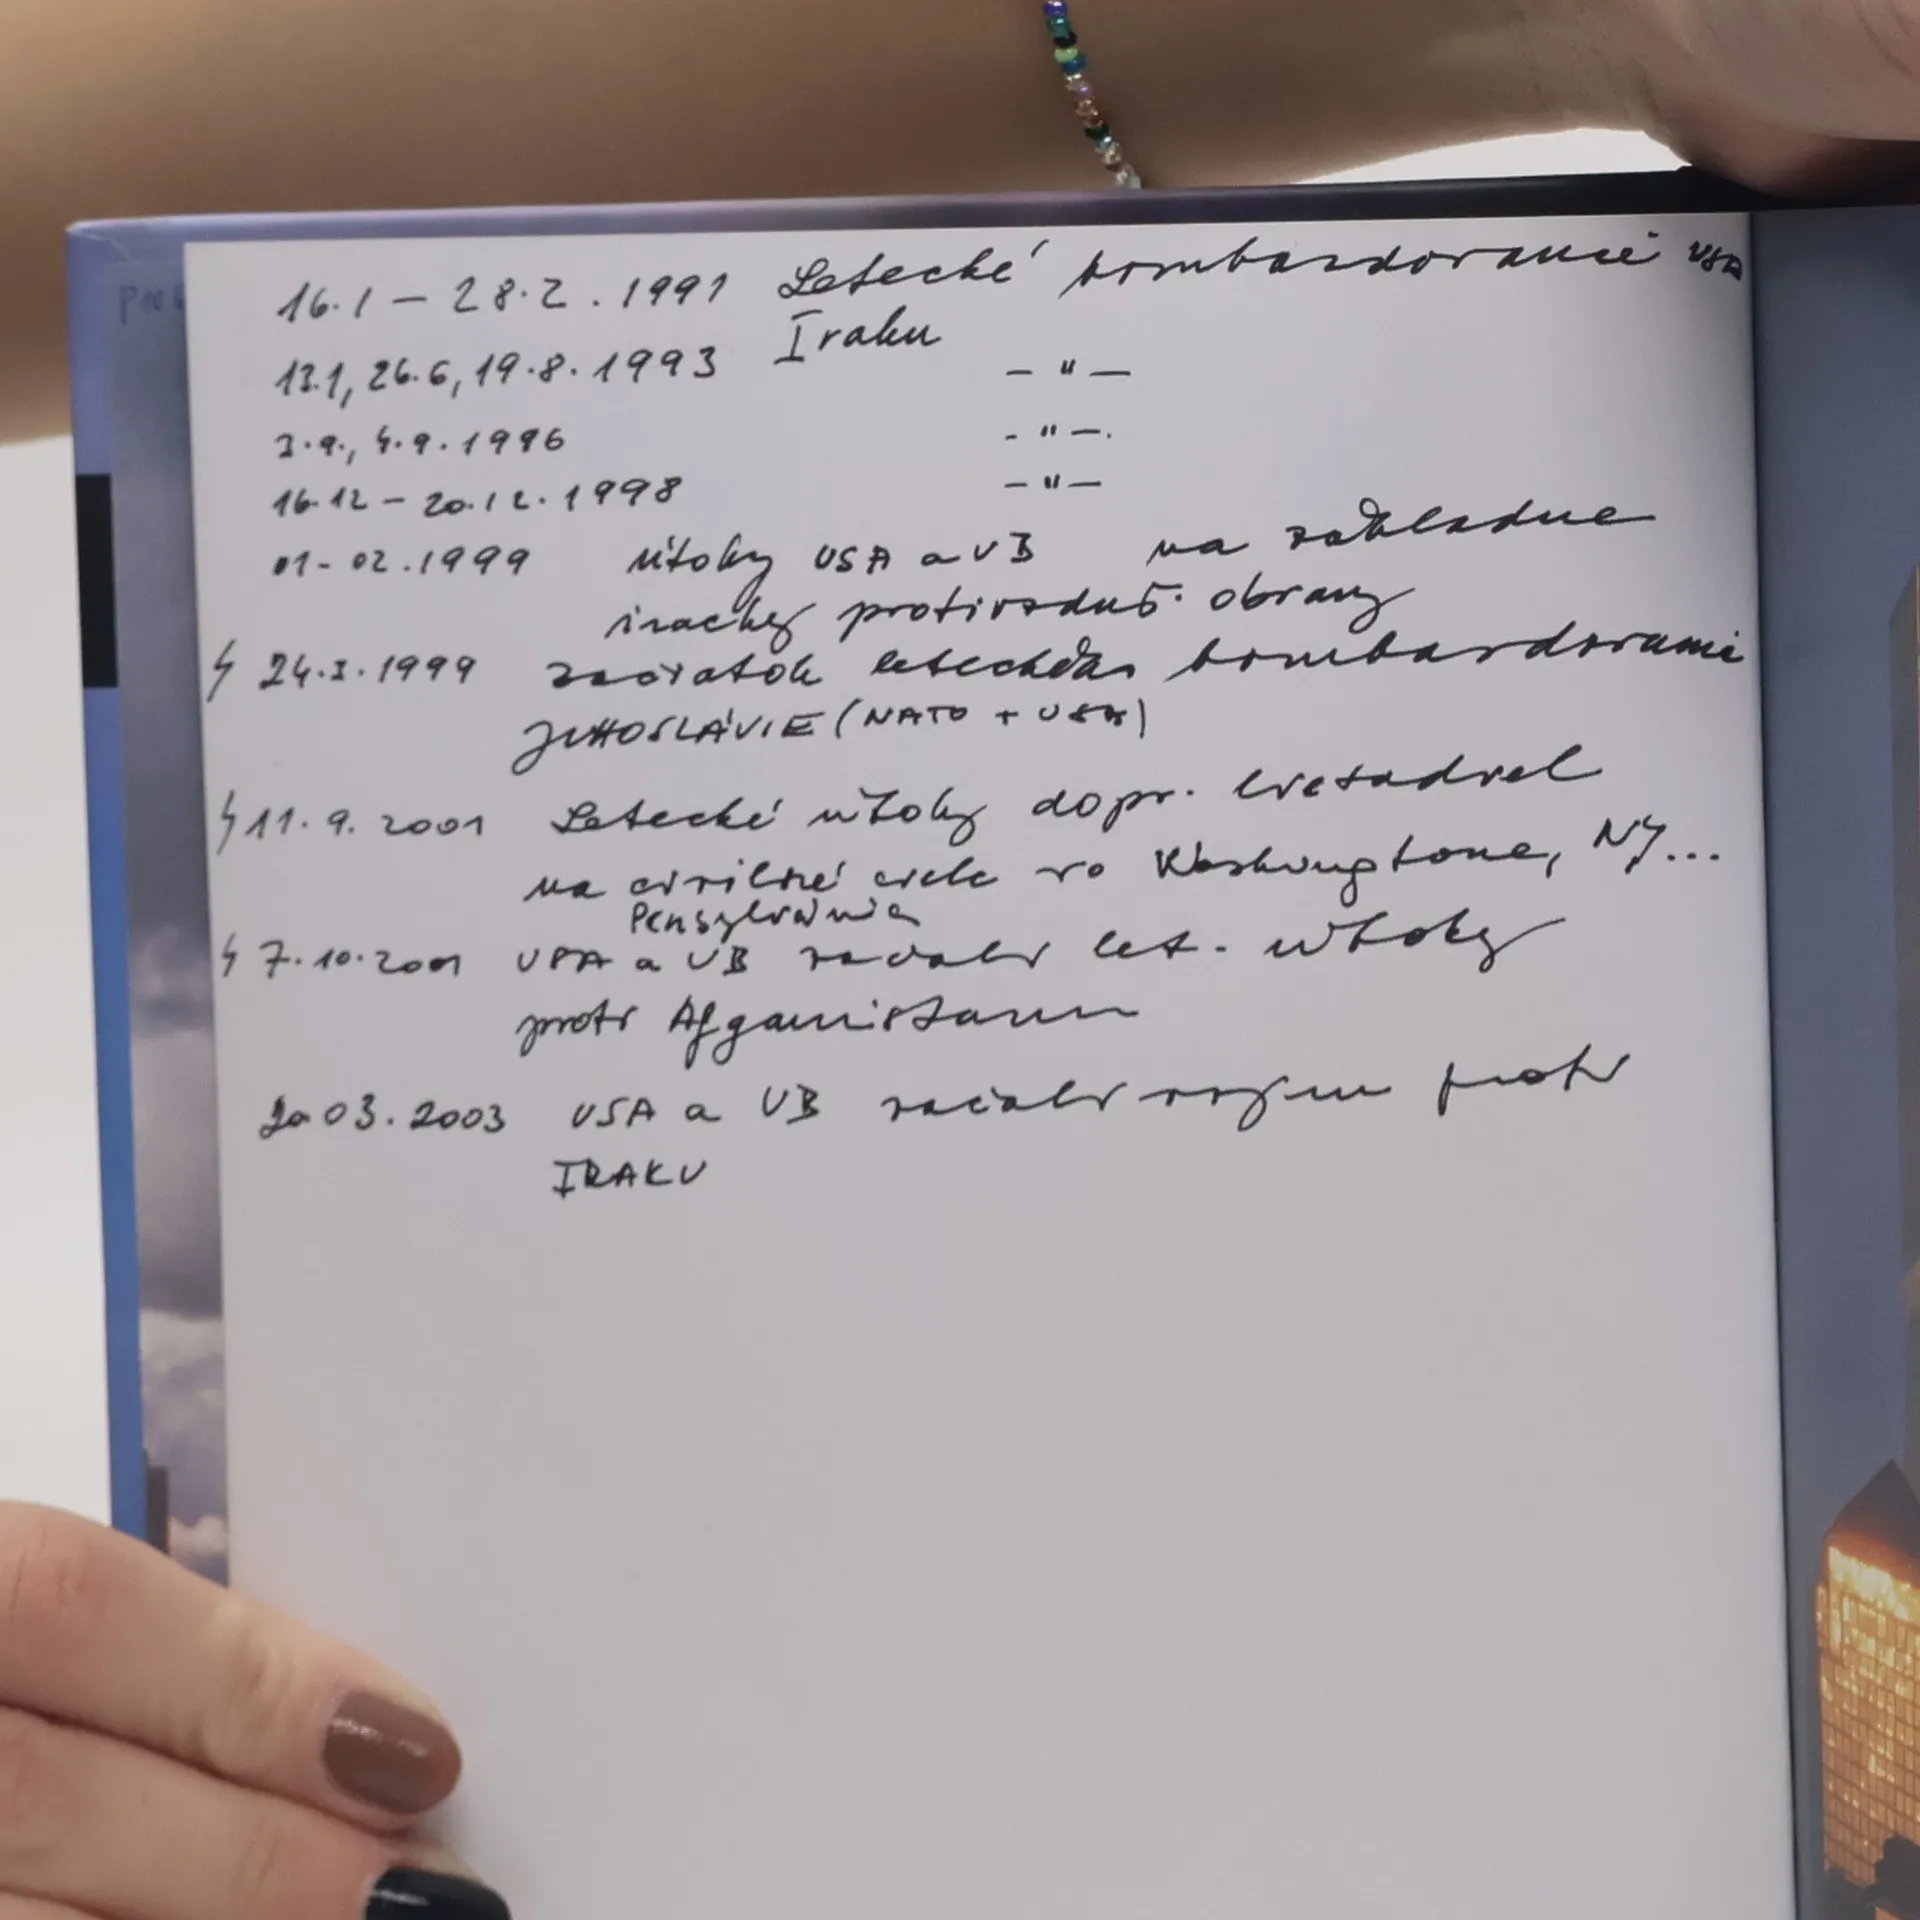 16.1 – 28.2.1991 Letecké bombardovanie USA
Iraku
13.1, 26.6, 19.8.1993 – " –
3.9., 4.9.1996 - " –.
16.12 – 20.12.1998 – " –
01-02.1999 útoky USA a VB na základne
irackej protivzduš. obrany
24.3.1999 začiatok bombardovania
JUHOSLÁVIE (NATO + USA)
11.9.2001 Letecké útoky dopr. lietadiel
na civilné ciele vo Washingtone, NY...
Pensylvánia
7.10.2001 USA a VB začali let. útoky
proti Afganistanu
20 03.2003 USA a VB začali vojnu proti
IRAKU